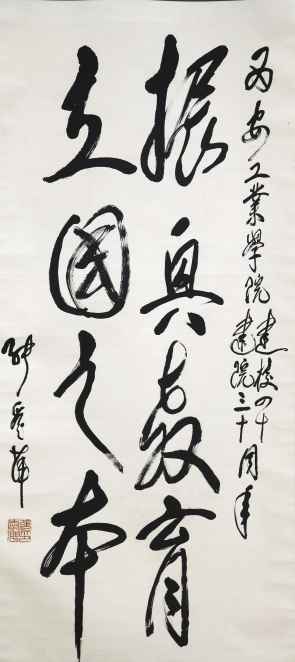 西安工業學院建校四十
建院三十周年
振興教育
立國之本